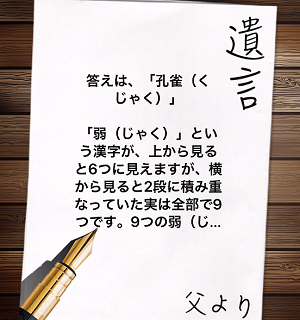 遺言
答えは、「孔雀（く
じゃく）」
「弱（じゃく）」とい
う漢字が、上から見る
と6つに見えますが、横
から見ると2段に積み重
なっていた実は全部で9
つです。9つの弱（じ...
父より